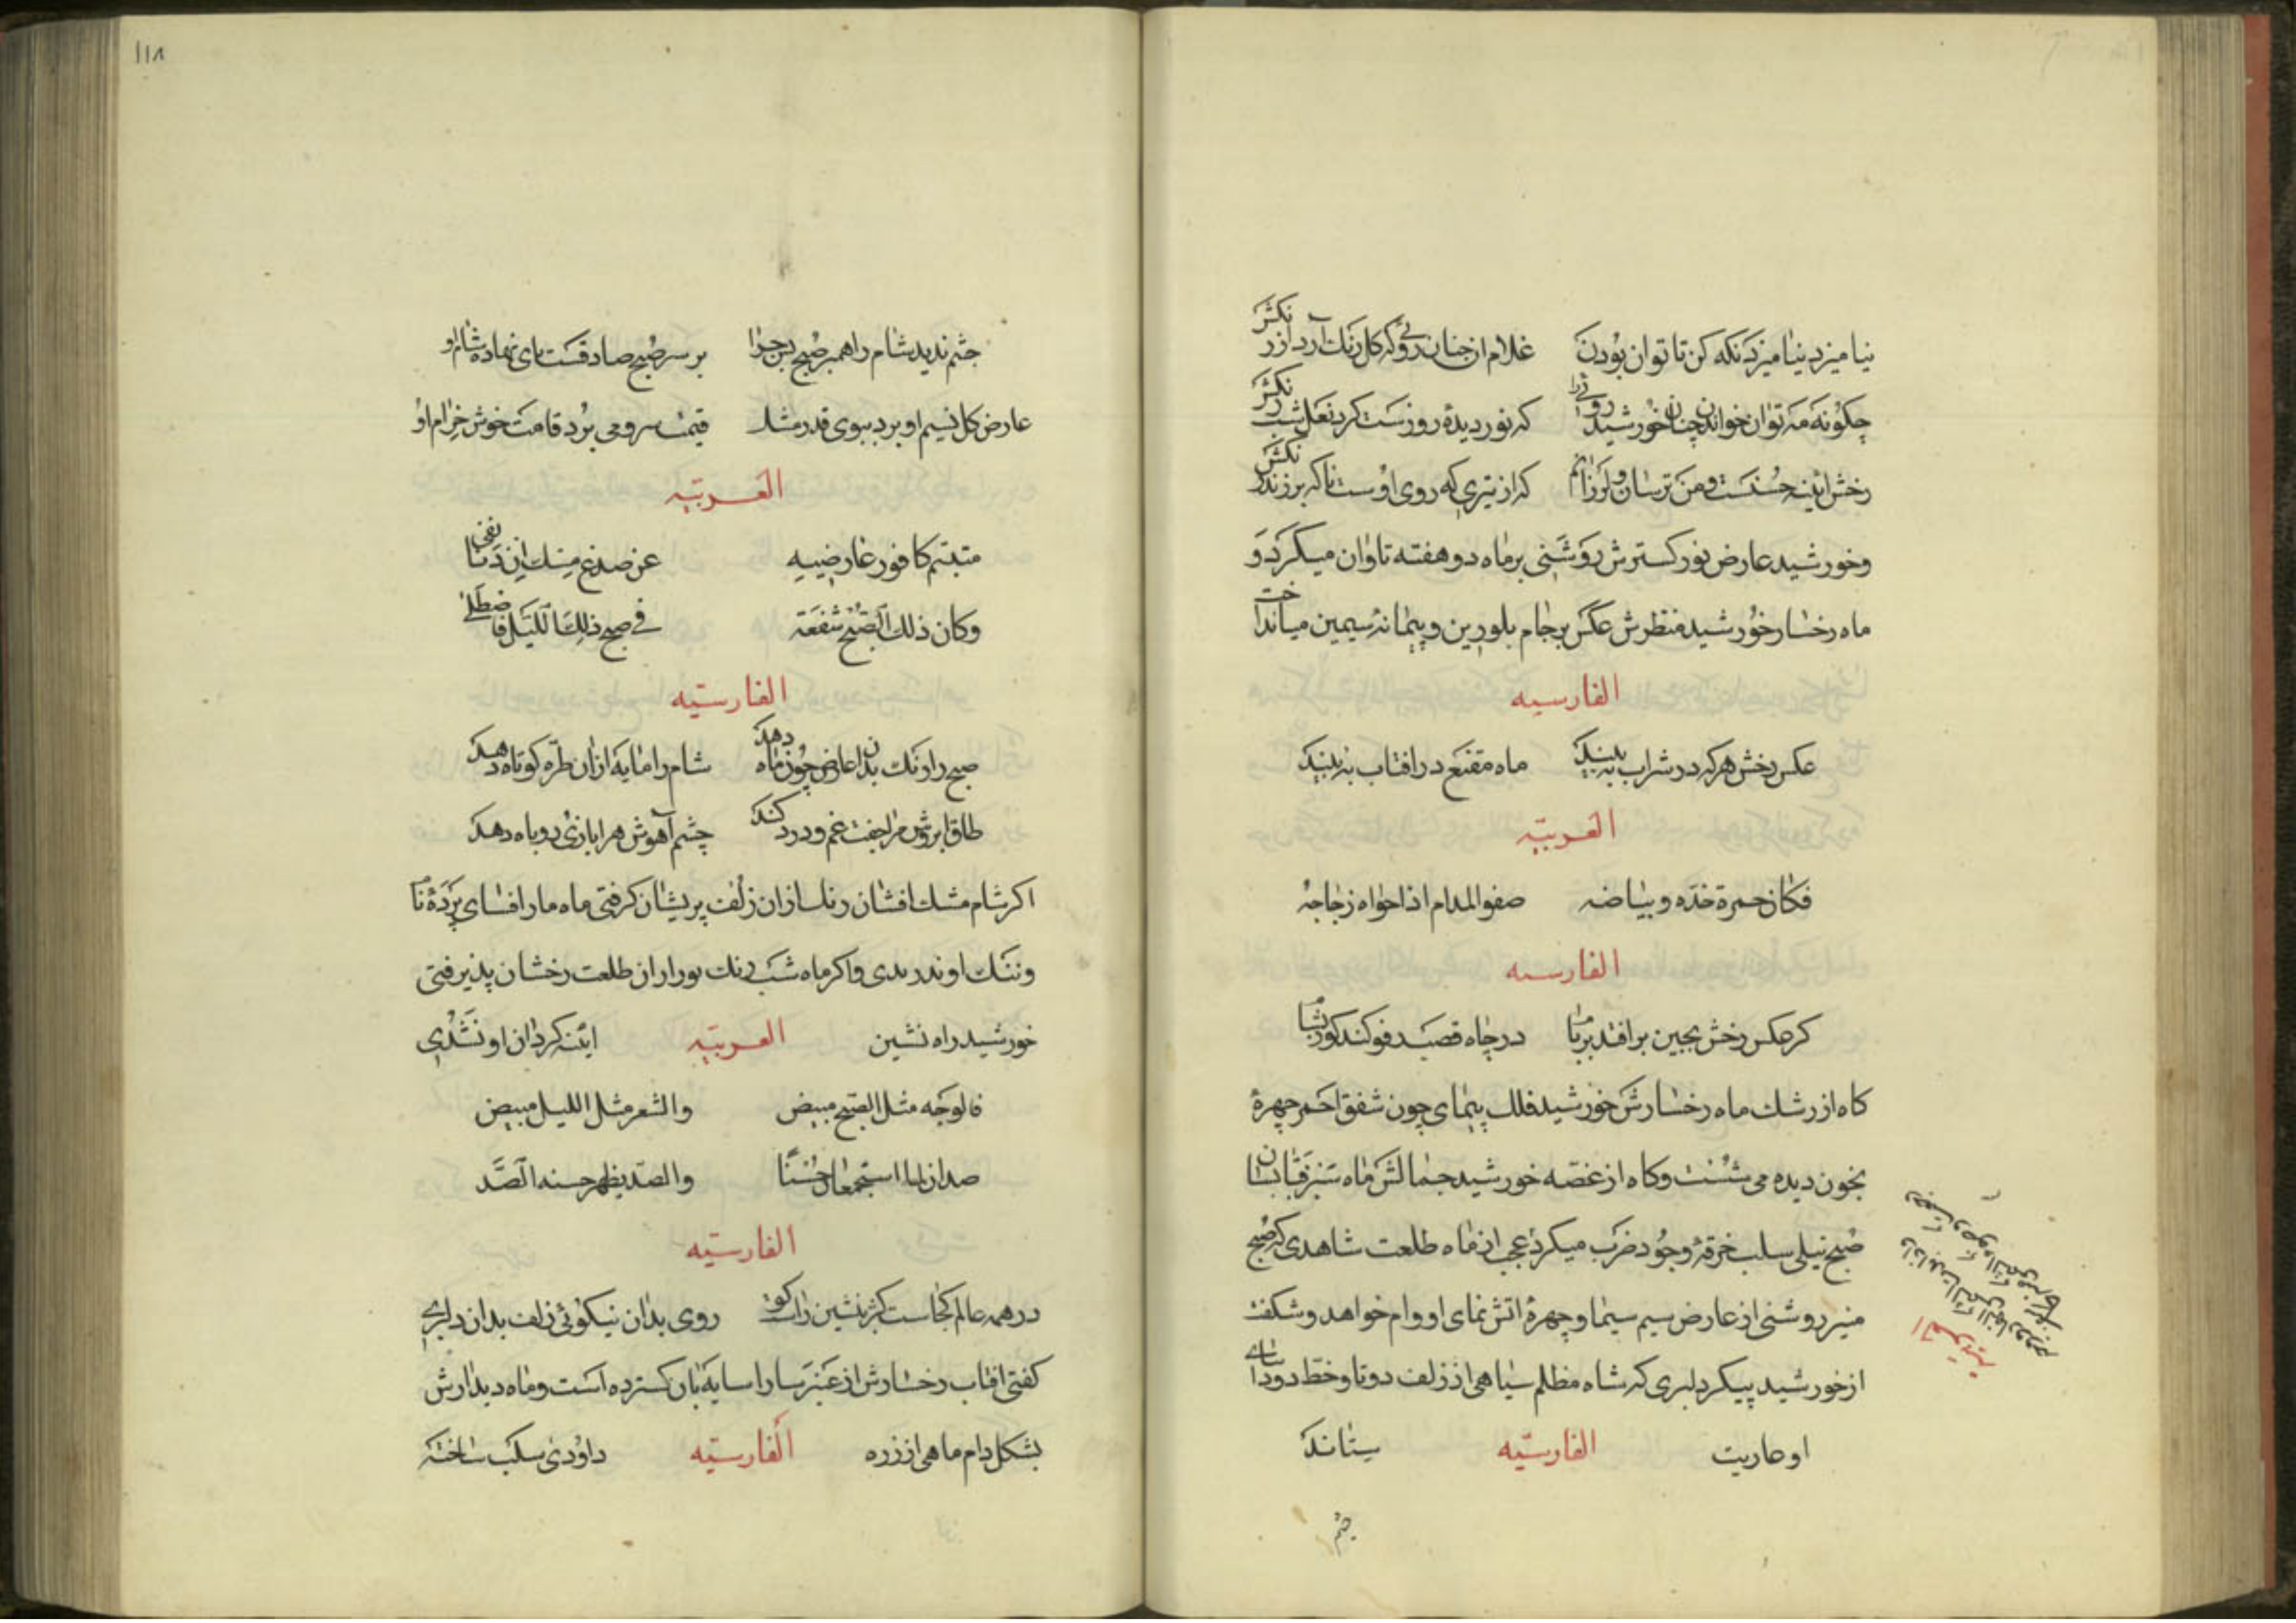 نیامیزد نیامیزد نکه کن تا توان بودن غلام از جنان روئی که کل رنک آرد از رنکش
چکونه مه توان خواندن چنان خورشید روئی را که نور دیدهٔ روزست کرد نعل شبرنکش
رخش ائینه حسنست ومن ترسان ولرزانم که از تیری که روی اوست ناکه برزند زنکش
وخورشید عارض نور کسترش روشنی بر ماه دو هفته تاوان میکرد و
ماه رخسار خورشید منظرش عکس بر جام بلورین و پیمانهٔ سیمین میانداخت
الفارسیه
عکس رخش هرکه در شراب به بیند ماه مقنع در افتاب به بیند
العربیه
فکان حمرة خده وبیاضه صفو المدام اذا حواه زجاجه
الفارسیه
کر عکس رخش بجین برافتد بر ما در چاه قصب فرو کند
کاه از رشک ماه رخسارش خورشید فلک پیمای چون شفق احمر چهرهٔ
بخون دیده می شست وکاه از غصه خورشید جمالش ماه سبز قبا بسان
صبح نیلی سلب خرقهٔ وجود ضرب میکرد عجب از ماه طلعت شاهدی که صبح
منیر روشنی از عارض سیم سیما وچهرهٔ اتش نمای او وام خواهد وشکفت
از خورشید پیکر دلبری که شاه مظلم سیاهی از زلف دوتا وخط دود اسای
او عاریت الفارسیه ستاند
چشم
۱۱۸
چشم ندید شام را همبر صبح بس چرا بر سر صبح صادقست پای نهاده شام او
عارض کل نسیم او برد ببوی قدر مشک قیمت سرو می برد قامت خوش خرام او
العربیه
متبتم کافور عارضیه عن صدغ مسک
وکان ذلک الصبح شفعة فی صبح ذلک اللیل
الفارسیه
صبح را رنک بدان عارض چون ماه دهد شام را مایه ازان طره کوتاه دهد
طاق ابروش مرا جفت غم ودرد کند چشم آهوش مرا بازی روباه دهد
اکر شام مشک افشان رنک ازان زلف پریشان کرفتی ماه مار افسای پردهٔ نام
وننک او ندریدی واکر ماه شب رنک نور ازان طلعت رخشان پذیرفتی
خورشید راه نشین العربیه ائنه کردان او نشدی
فالوجه مثل الصبح مبیض والشعر مثل اللیل مبیض
ضدان لما استجمعا حسنا والضد یظهر حسنه الضد
الفارسیه
در همه عالم کجاست کژ نشین راست کو روی بدان نیکوئی زلف بدان دلبری
کفتی افتاب رخسارش از عنبر سارا سایه بان کسترده است وماه دیدارش
بشکل دام ماهی از زره الفارسیه داودی سلب ساخته